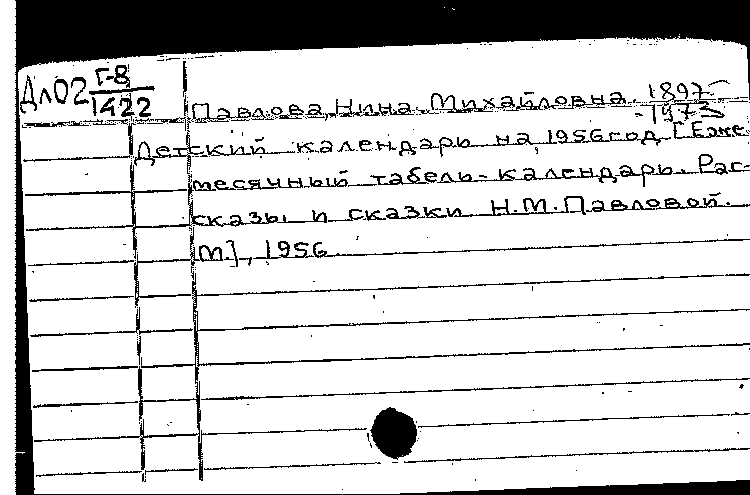 Дл02 Г-8
1422
Павлова, Нина Михайловна. 1897-
-1973
Детский календарь на 1956 год. [Еже-
месячный табель-календарь. Рас-
сказы и сказки Н.М. Павловой.
М], 1956